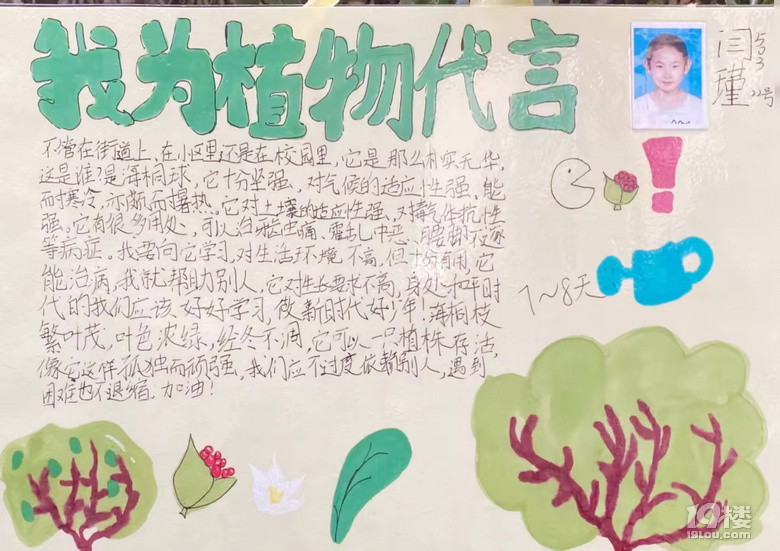 我为植物代言
闫瑾
553
22号
不管在街道上,在小区里还是在校园里,它是那么朴实无华,
这是谁?是海桐球,它十分坚强,对气候的适应性强,能
耐寒冷,亦耐暑热。它对土壤的适应性强、对毒气体抗性
强。它有很多用处,可以治牙虫痛、霍乱中恶、腰脚不遂
等病症。我要向它学习,对生活环境不高,但十分有用,它
能治病,我就帮助别人,它对生长要求不高,身处和平时
代的我们应该好好学习,做新时代好少年!海桐枝
繁叶茂,叶色浓绿,经冬不凋,它可以一只植株存活,
像它这样孤独而顽强,我们应不过度依赖别人,遇到
困难也不退缩,加油!
7~8天
19楼
19lou.com